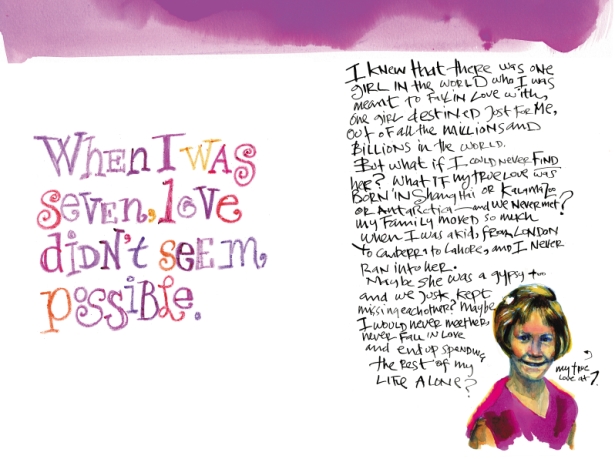 When I was
seven, love
didn't seem
possible.
I knew that there was one
girl in the world who I was
meant to fall in love with,
one girl destined just for me,
out of all the millions and
billions in the world.
But what if I could never find
her? What if my true love was
born in Shanghai or Kalamazoo
or Antarctica—and we never met?
My family moved so much
when I was a kid, from London
to Canberra to Lahore, and I never
ran into her.
Maybe she was a gypsy too
and we just kept
missing each other? Maybe
I would never meet her,
never fall in love
and end up spending
the rest of my
life alone?
my true
love at 7.